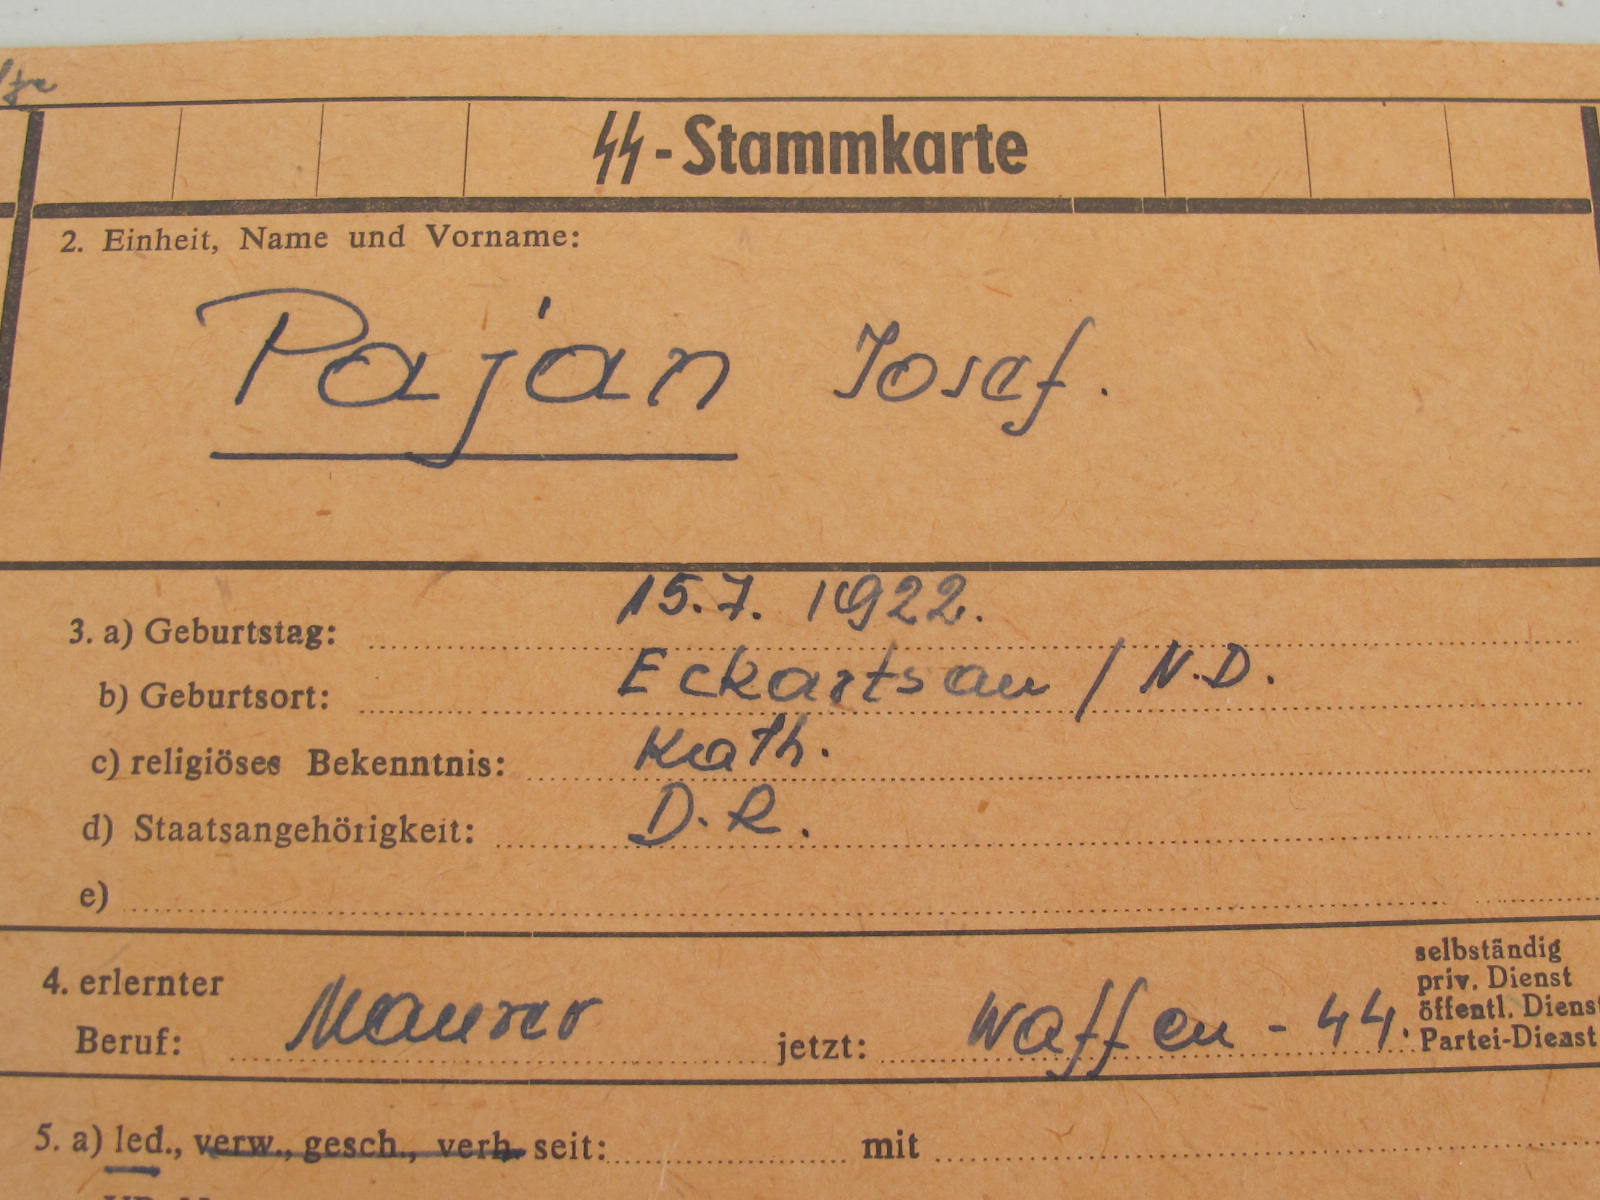 ᛋᛋ-Stammkarte
2. Einheit, Name und Vorname:
Paján Josef.
15.7. 1922.
3. a) Geburtstag:
b) Geburtsort: Eckartsau / N.D.
c) religiöses Bekenntnis: Kath.
d) Staatsangehörigkeit: D.R.
e)
selbständig
4. erlernter priv. Dienst
Beruf: Maurer jetzt: Waffen-ᛋᛋ. öffentl. Dienst
Partei-Dienst
5. a) led., verw., gesch., verh. seit: mit